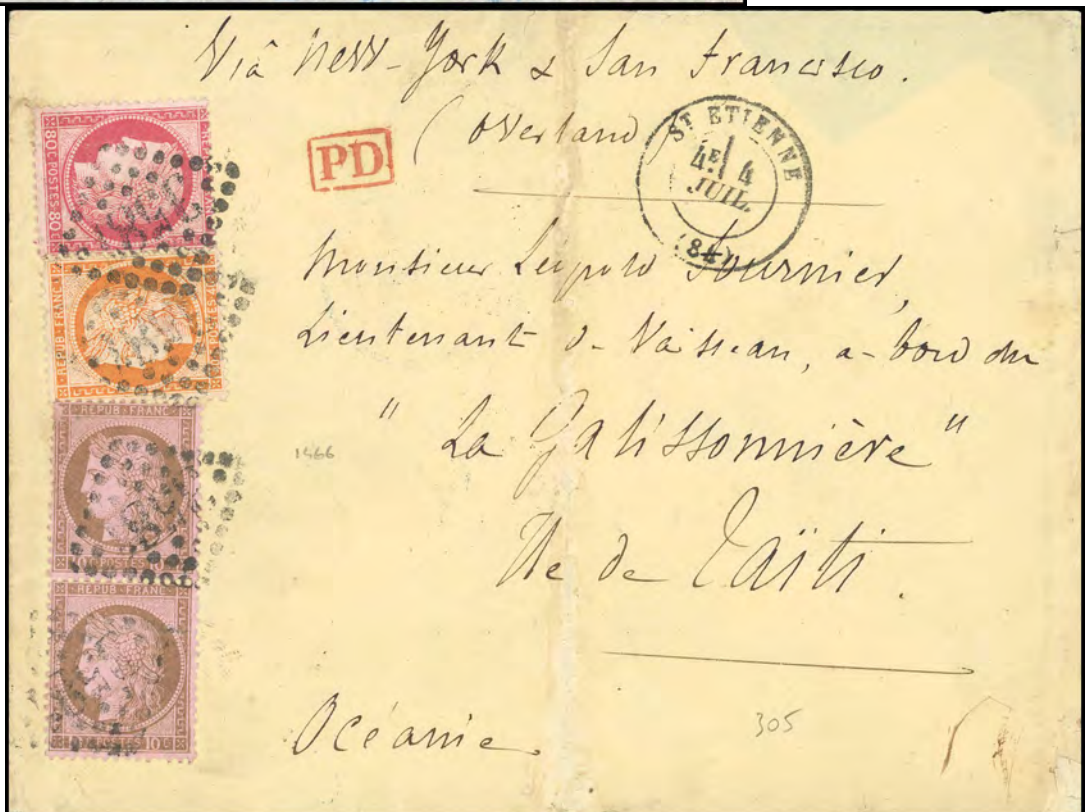 Viâ New-York & San Francisco.
(Overland)
PD
ST ETIENNE
4E 4
JUIL.
(84)
80C POSTES 80
REPUB FRANC
REPUB FRANC
10 POSTES 10
REPUB FRANC
POSTES 10C
Monsieur Léopold Fournier,
Lieutenant de Vaisseau, a-bord du
1466
"La Galissonnière"
Ile de Taïti.
Océanie
305